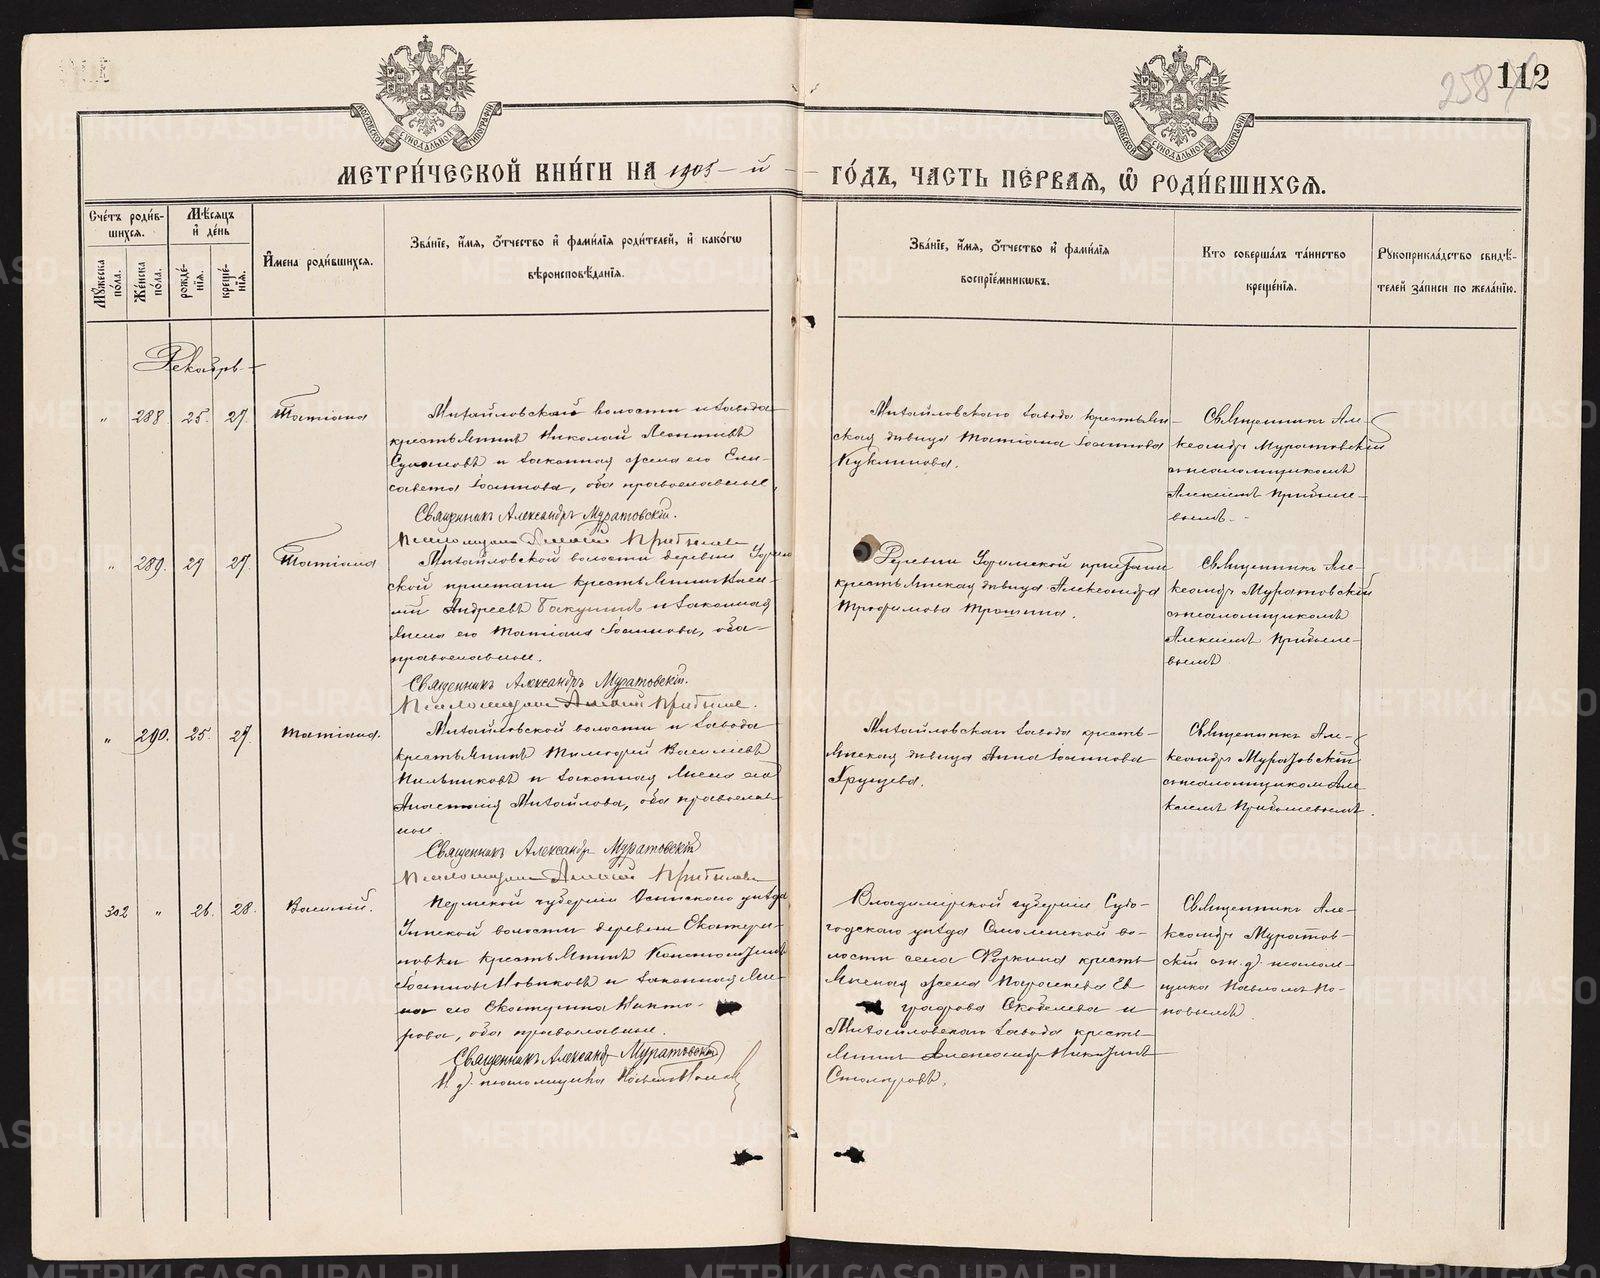 112
258
МЕТРИ́ЧЕСКОЙ КНИ́ГИ НА 1905-й ГО́ДЪ, ЧАСТЬ ПЕ́РВАѦ, Ѡ҆ РОДИ́ВШИХСѦ.
МОСКОВСКОЙ СѴНОДАЛЬНОЙ ТИПОГРАФІИ
МОСКОВСКОЙ СѴНОДАЛЬНОЙ ТИПОГРАФІИ
Сче́тъ роди́в-
шихсѧ.
Мꙋ́жеска по́ла.
Же́нска по́ла.
Мѣ́сѧцъ
и҆ де́нь
рожде́-
нїѧ.
креще́-
нїѧ.
И҆мена роди́вшихсѧ.
Зва́нїе, и҆́мѧ, ѻ҆́тчество и҆ фами́лїѧ роди́телей, и҆ како́гѡ
вѣроисповѣ́данїѧ.
Зва́нїе, и҆́мѧ, ѻ҆́тчество и҆ фами́лїѧ
воспрїе́мникѡвъ.
Кто̀ соверша́лъ та́инство
креще́нїѧ.
Рꙋкоприкла́дство свидѣ́-
телей за́писи по жела́нїю.
Декабрь
" 288 25. 27. Татіана
Михайловской волости и завода
крестьянинъ Николай Леонтіевъ
и законная жена его Ели-
савета Іоаннова, оба православные,
Священникъ Александръ Муратовскій.
Псаломщикъ Алексій Прибылевъ
Михайловскаго завода крестьян-
ская дѣвица Татіана Іоаннова
Куклинова.
Священникъ Але-
ксандръ Муратовскій
съ псаломщикомъ
Алексіемъ Прибыле-
вымъ.
" 289. 27 27. Татіана
Михайловской волости деревни Уфим-
ской пристани крестьянинъ
Андреевъ Бакунинъ и законная
жена его Татіана Іоаннова, оба
православные.
Священникъ Александръ Муратовскій.
Псаломщикъ Алексій Прибылевъ.
Деревни Уфимской пристани
крестьянская дѣвица Александра
Трофимова Трошина.
Священникъ Але-
ксандръ Муратовскій
съ псаломщикомъ
Алексіемъ Прибыле-
вымъ
" 290. 25. 27. Татіана.
Михайловской волости и завода
крестьянинъ Тимофей Васильевъ
Пильниковъ и законная жена его
Анастасія Михайлова, оба православ-
ные.
Священникъ Александръ Муратовскій
Псаломщикъ Алексій Прибылевъ
Михайловскаго завода кресть-
янская дѣвица Анна Іоаннова
Хрущева.
Священникъ Але-
ксандръ Муратовскій
съ псаломщикомъ Але-
ксіемъ Прибылевымъ.
302 " 26. 28. Василій.
Пермской губерніи Осинскаго уѣзда
волости деревни Екатери-
новки крестьянинъ Константинъ
Іоанновъ Новиковъ и законная же-
на его Екатерина Никто-
рова, оба православные.
Священникъ Александръ Муратовскій
И. д. псаломщика Павелъ Поповъ
Владимірской губерніи Судо-
годскаго уѣзда Смоленской во-
лости села крестьян-
янская жена Параскева Ев-
графова Скобелева и
Михайловскаго завода кресть-
янинъ Александръ Никитинъ
Столяровъ.
Священникъ Але-
ксандръ Муратов-
скій съ и. д. псалом-
щика Павломъ По-
повымъ.
METRIKI.GASO-URAL.RU